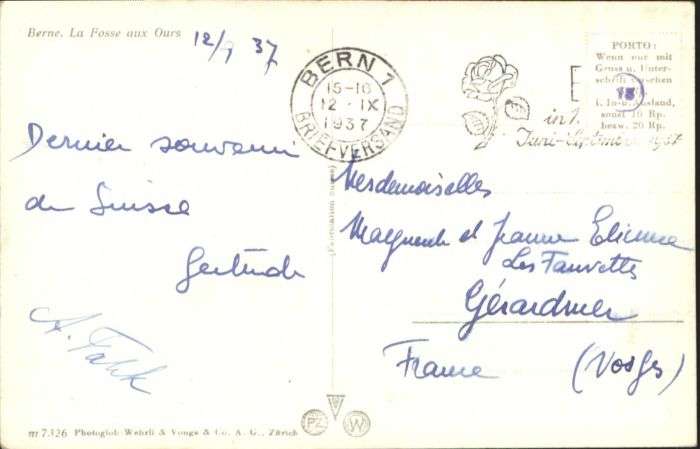 Berne. La Fosse aux Ours
12/9 37
BERN 1
15-16
12·IX
1937
BRIEFVERSAND
PORTO:
Wenn nur mit
Gruss u. Unter-
schrift versehen
15
i. In- u. Ausland,
sonst 10 Rp.
bezw. 20 Rp.
in
Juni-Septembre 1937
Dernier souvenir
de Suisse
Gertrude
A. Falck
Mesdemoiselles
Marguerite et Jeanne Etienne
Les Fauvettes
Gérardmer
France (Vosges)
m 7326 Photoglob-Wehrli & Vouga & Co. A. G., Zürich
PZ W